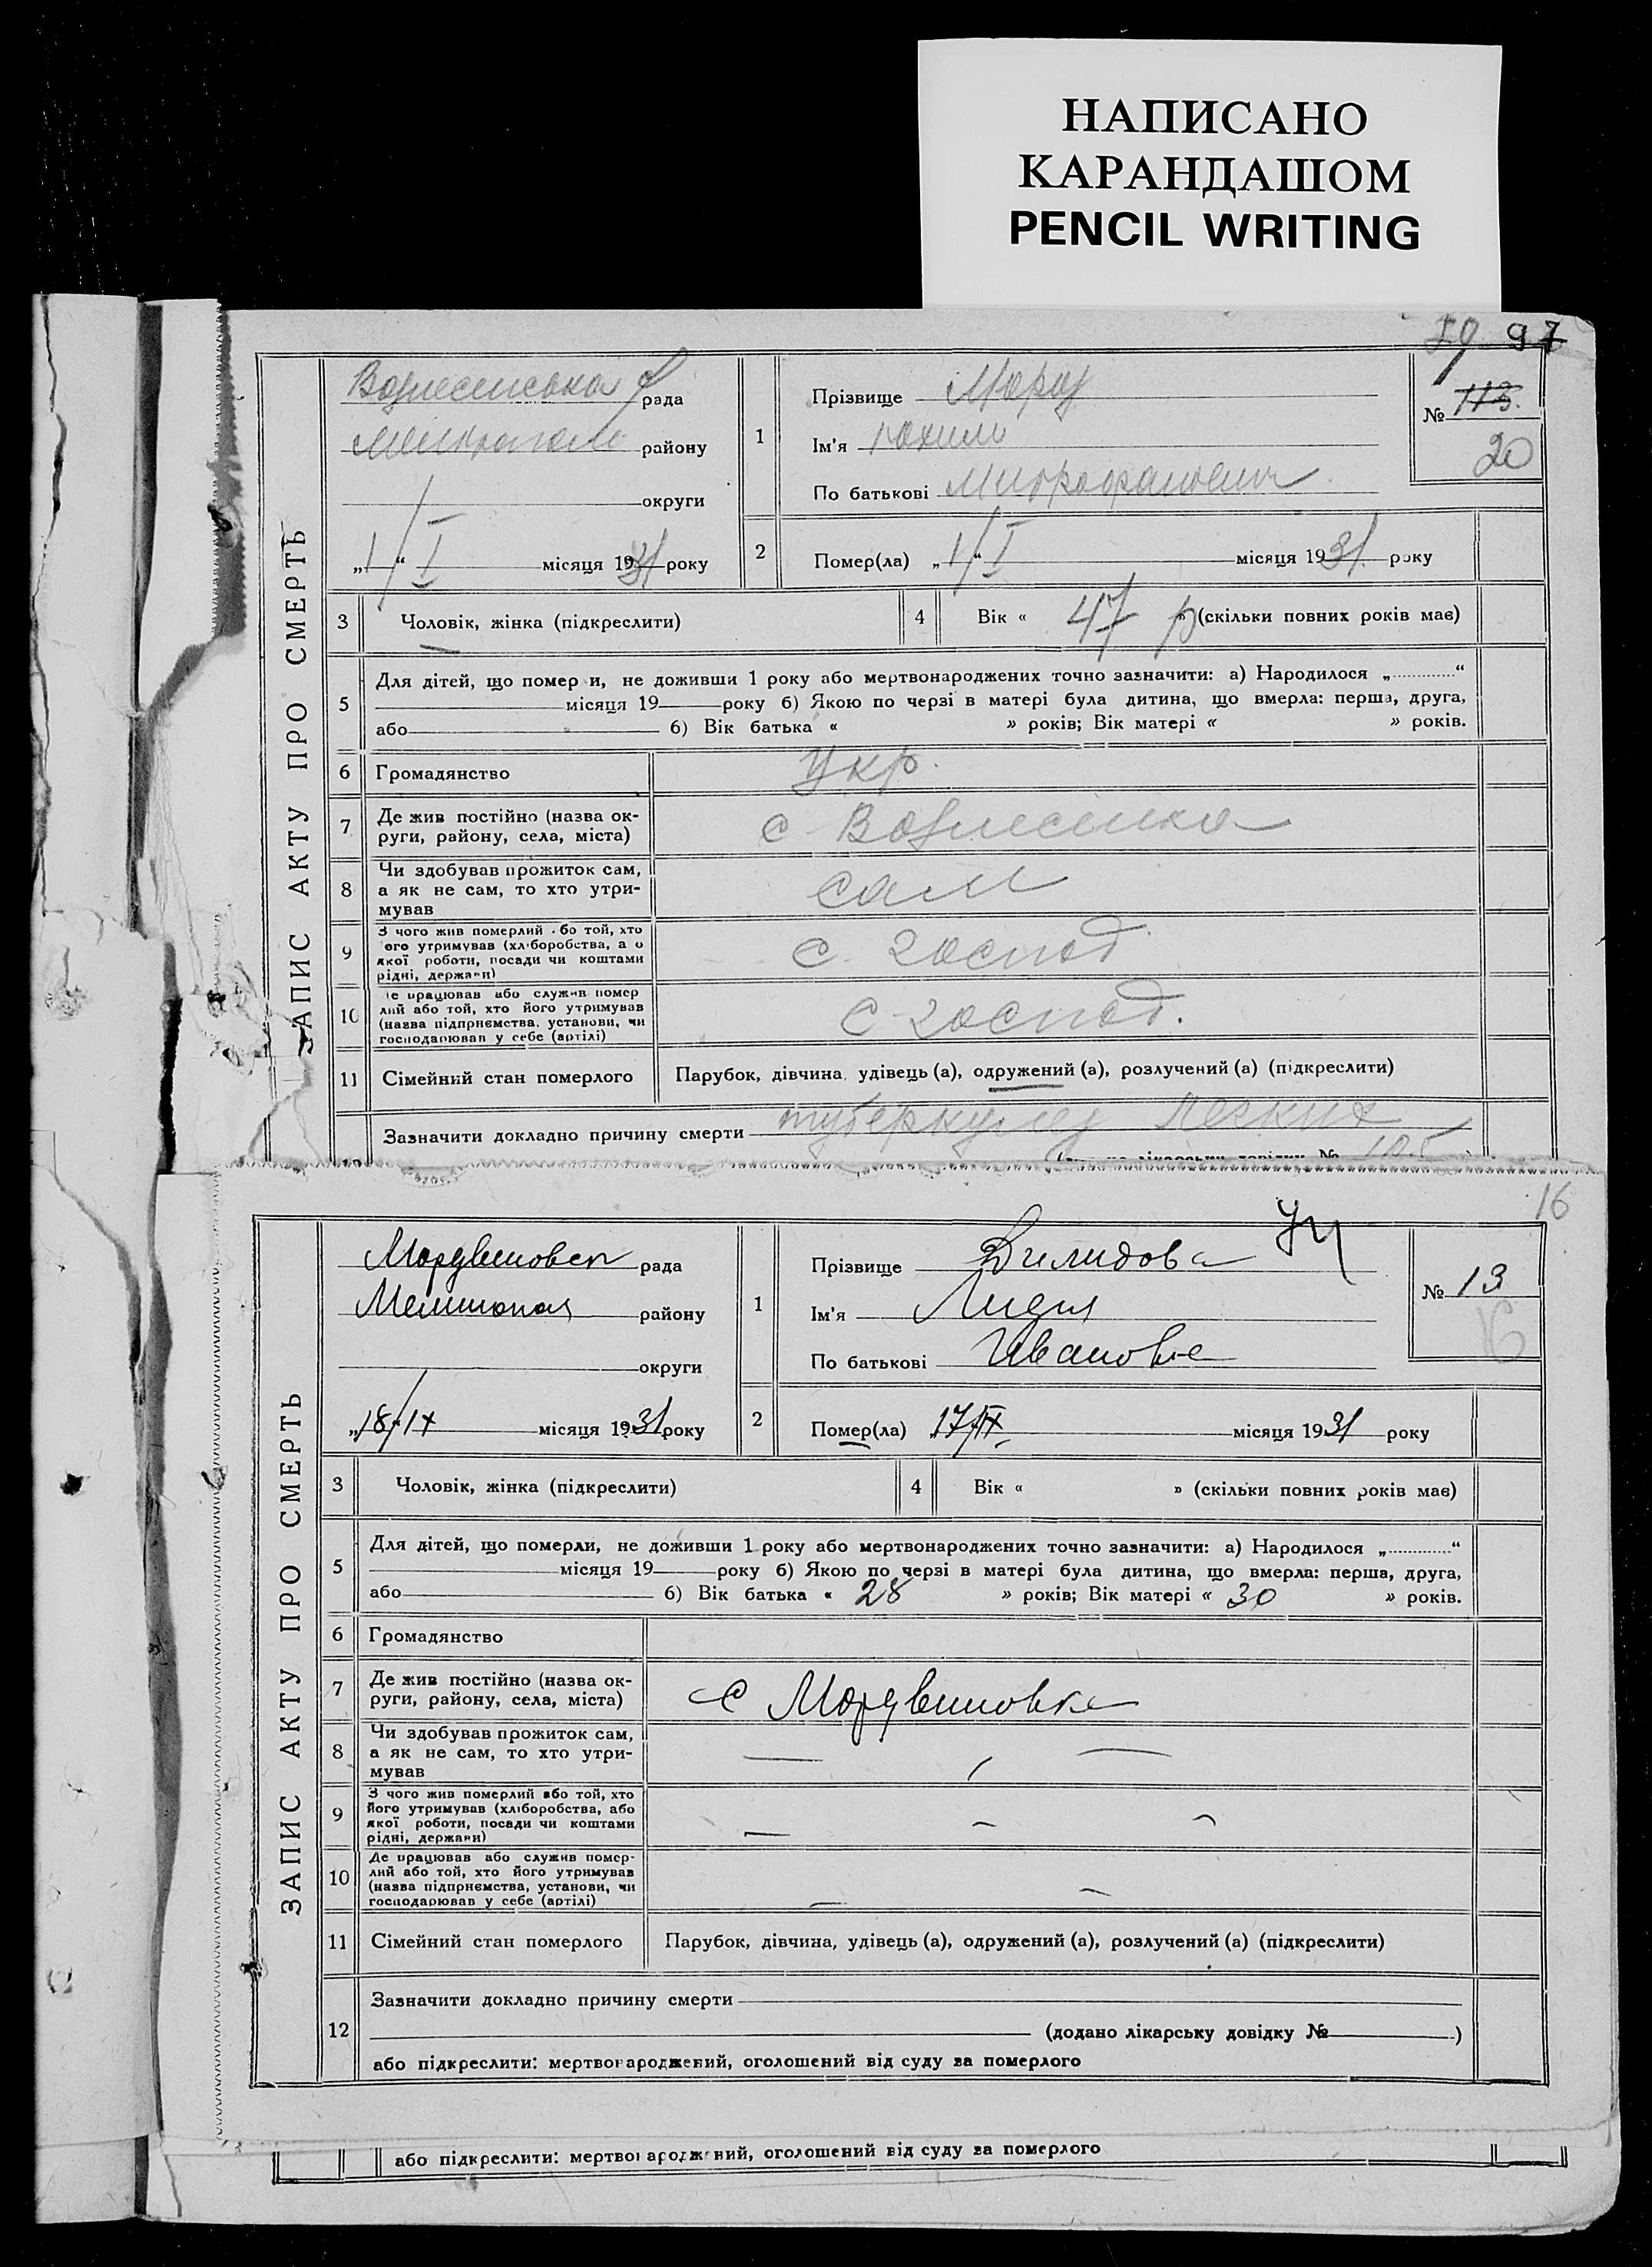 НАПИСАНО
КАРАНДАШОМ
PENCIL WRITING
59 97
ЗАПИС АКТУ ПРО СМЕРТЬ
Вознесенська рада
району
округи
„1“ I місяця 1931 року
1
Прізвище Мороз
Ім'я
По батькові Митрофанович
№ 113.
20
2 Помер(ла) „1“ I місяця 1931 року
3 Чоловік, жінка (підкреслити)
4 Вік « 47 р» (скільки повних років має)
5 Для дітей, що помер и, не доживши 1 року або мертвонароджених точно зазначити: а) Народилося „............“
місяця 19 року б) Якою по черзі в матері була дитина, що вмерла: перша, друга,
або б) Вік батька « » років; Вік матері « » років.
6 Громадянство Укр.
7 Де жив постійно (назва ок-
руги, району, села, міста) с. Вознесенка
8 Чи здобував прожиток сам,
а як не сам, то хто утри-
мував сам
9 З чого жив померлий бо той, хто
ого утримував (хліборобства, а о
якої роботи, посади чи коштами
рідні, держави) с. господ.
10 е працював або служив помер
лий або той, хто його утримував
(назва підприємства, установи, чи
господарював у себе (артілі) с-господ.
11 Сімейний стан померлого Парубок, дівчина, удівець (а), одружений (а), розлучений (а) (підкреслити)
Зазначити докладно причину смерти туберкулез легких
105
16
ЗАПИС АКТУ ПРО СМЕРТЬ
Мордвиновск рада
Мелитопол району
округи
„18/IX місяця 1931 року
1
Прізвище
Ім'я Лидия
По батькові Ивановна
№ 13
16
2 Помер(ла) „17/IX місяця 1931 року
3 Чоловік, жінка (підкреслити)
4 Вік « » (скільки повних років має)
5 Для дітей, що померли, не доживши 1 року або мертвонароджених точно зазначити: а) Народилося „............“
місяця 19 року б) Якою по черзі в матері була дитина, що вмерла: перша, друга,
або б) Вік батька « 28 » років; Вік матері « 30 » років.
6 Громадянство
7 Де жив постійно (назва ок-
руги, району, села, міста) с Мордвиновка
8 Чи здобував прожиток сам,
а як не сам, то хто утри-
мував
9 З чого жив померлий або той, хто
його утримував (хліборобства, або
якої роботи, посади чи коштами
рідні, держави)
10 Де працював або служив помер-
лий або той, хто його утримував
(назва підприємства, установи, чи
господарював у себе (артілі)
11 Сімейний стан померлого Парубок, дівчина, удівець (а), одружений (а), розлучений (а) (підкреслити)
12 Зазначити докладно причину смерти
(додано лікарську довідку № )
або підкреслити: мертвонароджений, оголошений від суду за померлого
або підкреслити: мертвонароджений, оголошений від суду за померлого